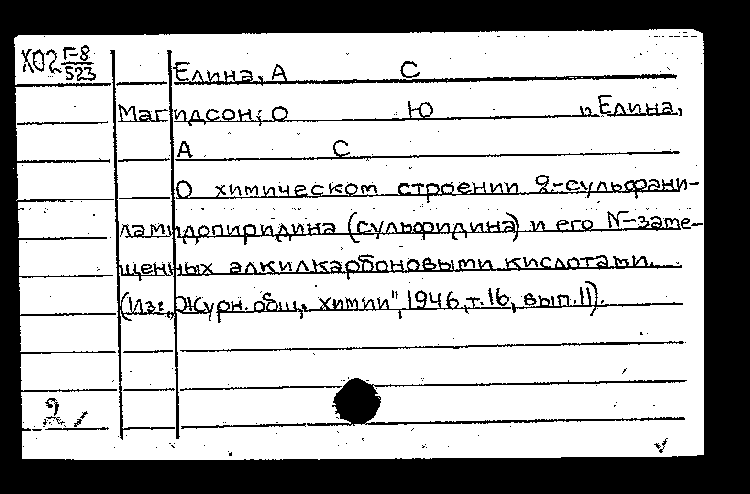 Х02 Г-8/523
Елина, А С
Магидсон, О Ю и Елина,
А С
О химическом строении 2-сульфани-
ламидопиридина (сульфидина) и его N-заме-
щенных алкилкарбоновыми кислотами.
(Из: „Журн. общ. химии", 1946, т. 16, вып. 11).
2